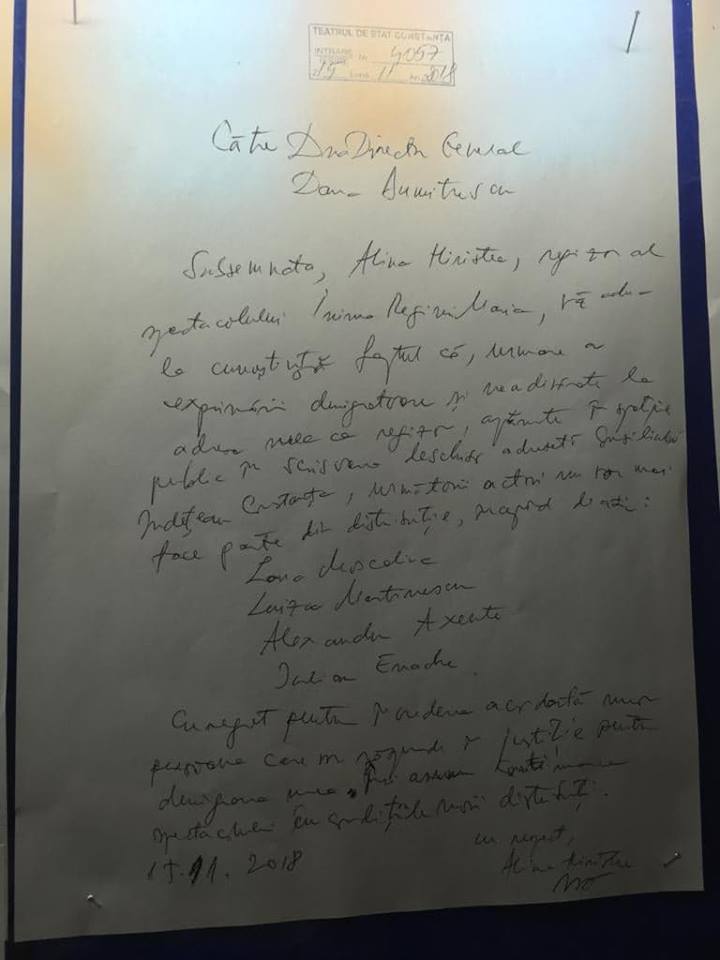 TEATRUL DE STAT CONSTANȚA
INTRARE Nr. 4057
Ziua 15 Luna 11 An 2018
Către Dna Director General
Dana Dumitrescu
Subsemnata, Alina Hiristea, regizor al
spectacolului Inima Reginei Maria, vă aduc
la cunoștință faptul că, urmare a
exprimării denigratoare și neadevărate la
adresa mea ca regizor, apărute în spațiu
public în scrisoarea deschisă adresată Consiliului
Județean Constanța, următorii actori nu vor mai
face parte din distribuție, începând de azi:
Lana Moscaliuc
Luiza Martinescu
Alexandru Axente
Iulian Enache
Cu regret pentru încrederea acordată unor
persoane care vor răspunde în justiție pentru
denigrarea mea, îmi asum continuarea
spectacolului în condițiile noii distribuții.
15.11.2018
cu respect,
Alina Hiristea